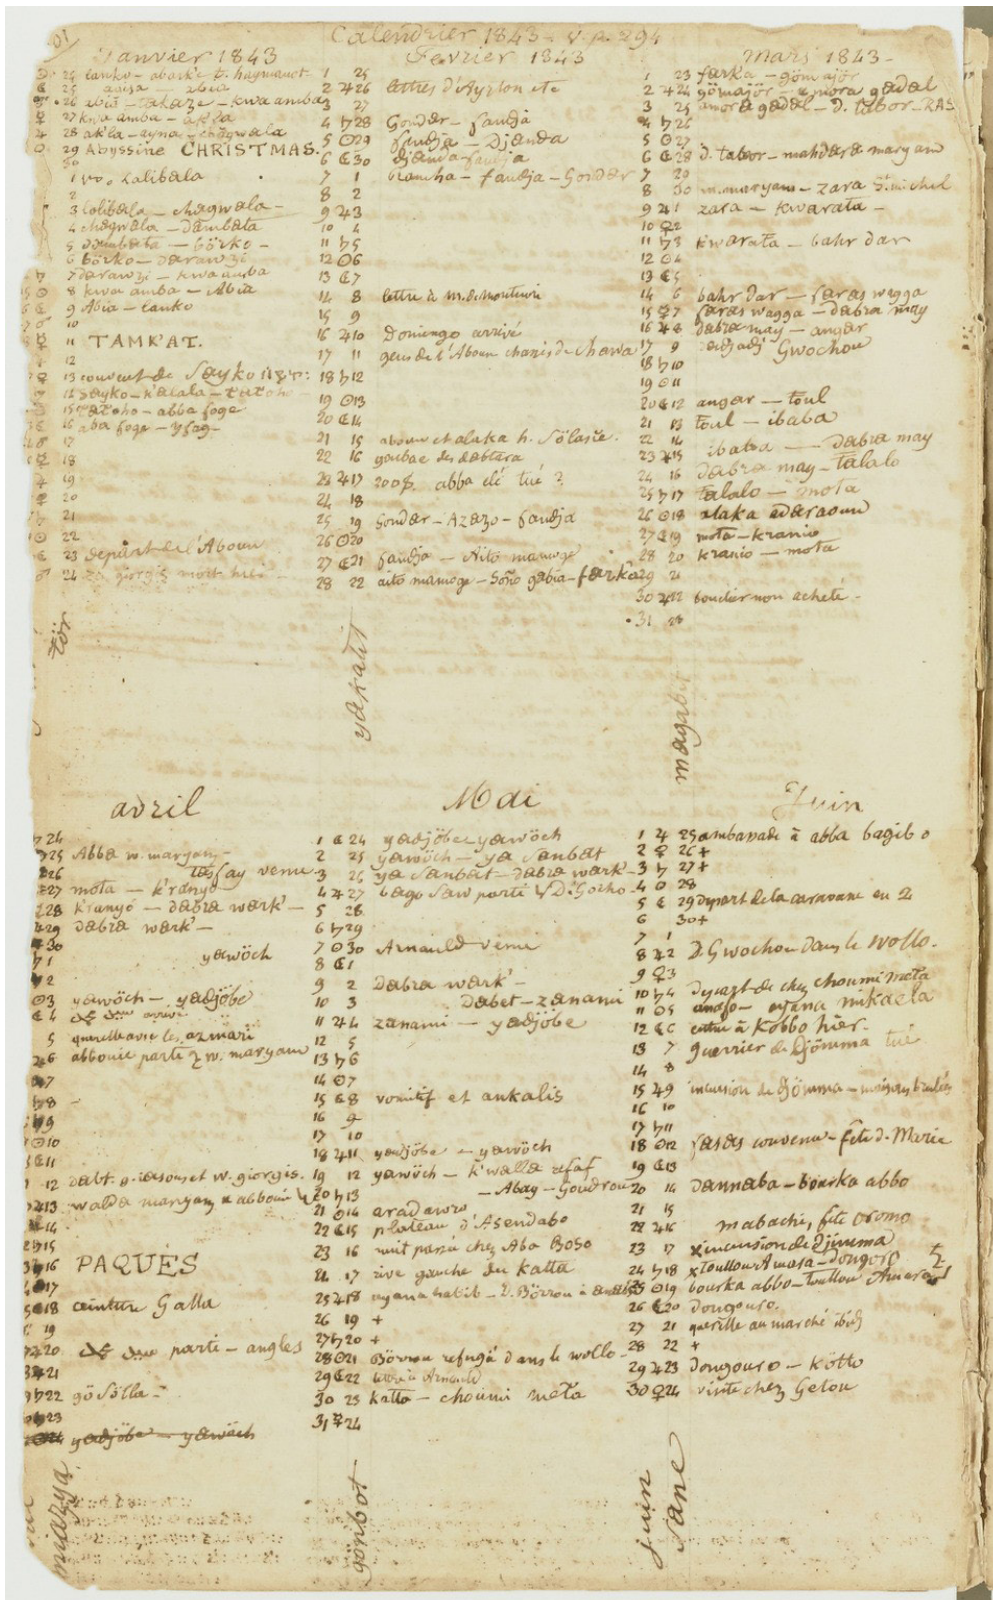 Calendrier 1843. v. p. 294
Janvier 1843
24 lanko - abark'e t. haymanot
25 abia
26 abiā - takaze - kwa amba
27 kwa amba - ak'la
28 ak'la - ayna - chagwala
29 Abyssine CHRISTMAS.
30
1 Lalibala
2
3 Lalibala - chagwala -
4 chagwala - dambata
5 dambata - börko -
6 börko - darawzi
7 darawzi - kwa amba
8 kwa amba - Abia
9 Abia - lanko
10
11 TAMK'AT.
12
13 couvent de Sayko
14 Sayko - k'alala - tatoho
15 tatoho - abba foge
16 aba foge - yfag -
17
18
19
20
21
22
23 départ de l'Aboun
24 giorgis mort hier -
tör
Fevrier 1843
1 25
2 ♃ 26 lettres d'Ayrton etc
3 27
4 ♄ 28 Gondar - fandja
5 ☉ 29 fandja - Djanda
6 ☾ 30 djanda - fandja
7 1 brancha - fandja - Gondar
8 2
9 ♃ 3
10 4
11 ♄ 5
12 ☉ 6
13 ☾ 7
14 8 lettre à M. de Montuori
15 9
16 ♃ 10 Domingo arrivé
17 11 gens de l'Aboun chassés de chawa
18 ♄ 12
19 ☉ 13
20 ☾ 14
21 15 aboun et alaka h. Sölasie.
22 16 goubae des dabtara
23 ♃ 17 200$. abba élé tué ?
24 18
25 19 Gondar - Azazo - fandja
26 ☉ 20
27 ☾ 21 fandja - Aito mamoge
28 22 aito mamoge - Soño gabia - fark'a
yakatit
Mars 1843 -
1 23 fark'a - gömajör
2 ♃ 24 gömajör - amora gadal
3 25 amora gadal - D. tabor - RAS
4 ♄ 26
5 ☉ 27
6 ☾ 28 d. tabor - mahdara maryam
7 29
8 30 m. maryam - zara St. michel
9 ♃ 1 zara - kwarata -
10 ♀ 2
11 ♄ 3 kwarata - bahr dar
12 ☉ 4
13 ☾ 5
14 6 bahr dar - faras wagga
15 ♀ 7 faras wagga - dabra may
16 ♃ 8 dabra may - angar
17 9 dadjadj Gwochou
18 ♄ 10
19 ☉ 11
20 ☾ 12 angar - toul
21 13 toul - ibaba
22 14 ibaba - dabra may
23 ♃ 15
24 16 dabra may - talalo
25 ♄ 17 talalo - mota
26 ☉ 18 alaka adaraoun
27 ☾ 19 mota - kranio
28 20 kranio - mota
29 21
30 ♃ 22 bouclier non acheté -
31 23
magabit
avril
24
25 Abba w. maryam -
26 tasfay venu -
27 mota - k'ranyo
28 kranyo - dabra wark' -
29 dabra wark' -
30
1 yawöch
2
3 yawöch - yadjöbe
4
5 querelle avec les azmari
6 abbouie parti w. maryam
7
8
9
10
11
12 dabt. g. iasous et w. giorgis.
13 walda maryam & abbouie
14
15
16 PAQUES
17
18 ceinture Galla
19
20 parti - angles
21
22 göSölla -
23
24 yadjöbe - yawöch
miazya
Mai
1 ☾ 24 yadjöbe yawöch
2 25 yawöch - ya Sanbat
3 26 ya Sanbat - dabra wark' -
4 ♃ 27 bago Saw parti D. Gocho
5 28
6 ♄ 29
7 ☉ 30 Arnauld venu
8 ☾ 1
9 2 dabra wark'
10 3 dabet - zanami
11 ♃ 4 zanami - yadjöbe
12 5
13 ♄ 6
14 ☉ 7
15 ☾ 8 vomitif et ankalis
16 9
17 10
18 ♃ 11 yadjöbe - yawöch
19 12 yawöch - k'walla rafaf
20 ♄ 13 - Abay - Goudrou
21 ☉ 14 aradawro
22 ☾ 15 plateau d'Asendabo
23 16 nuit passée chez Aba Boso
24 17 rive gauche du Katta
25 ♃ 18 ayana habib - D. Börrou
26 19 +
27 ♄ 20 +
28 ☉ 21 Börrou refugé dans le wollo -
29 ☾ 22 lettre à Arnauld
30 23 katta - choumi mata
31 ♀ 24
gönbot
Juin
1 ♃ 25 ambassade à abba bagibo
2 ♀ 26 +
3 ♄ 27 +
4 ☉ 28
5 ☾ 29 départ de la caravane en 2
6 30 +
7 1
8 ♃ 2 D. Gwochou dans le wollo.
9 ♀ 3
10 ♄ 4 départ de chez choumi mata
11 ☉ 5 ayana mikaela
12 ☾ 6 entré à Kobbo hier.
13 7 guerrier de Djömma tué
14 8
15 ♃ 9 incursion de djömma - maisons brulées
16 10
17 ♄ 11
18 ☉ 12 couvenu - fête d. Marie
19 ☾ 13
20 14 dannaba - bourka abbo
21 15
22 ♃ 16 mabachi, fête oromo
23 17 x incursion de djimma
24 ♄ 18 x toullou Amara - dongoro
25 ☉ 19 bourka abbo - toullou Amara
26 ☾ 20 dongouro.
27 21 querelle au marché ibid
28 22 +
29 ♃ 23 dongouro - kötto
30 ♀ 24 visite chez Getou
juin
Sane